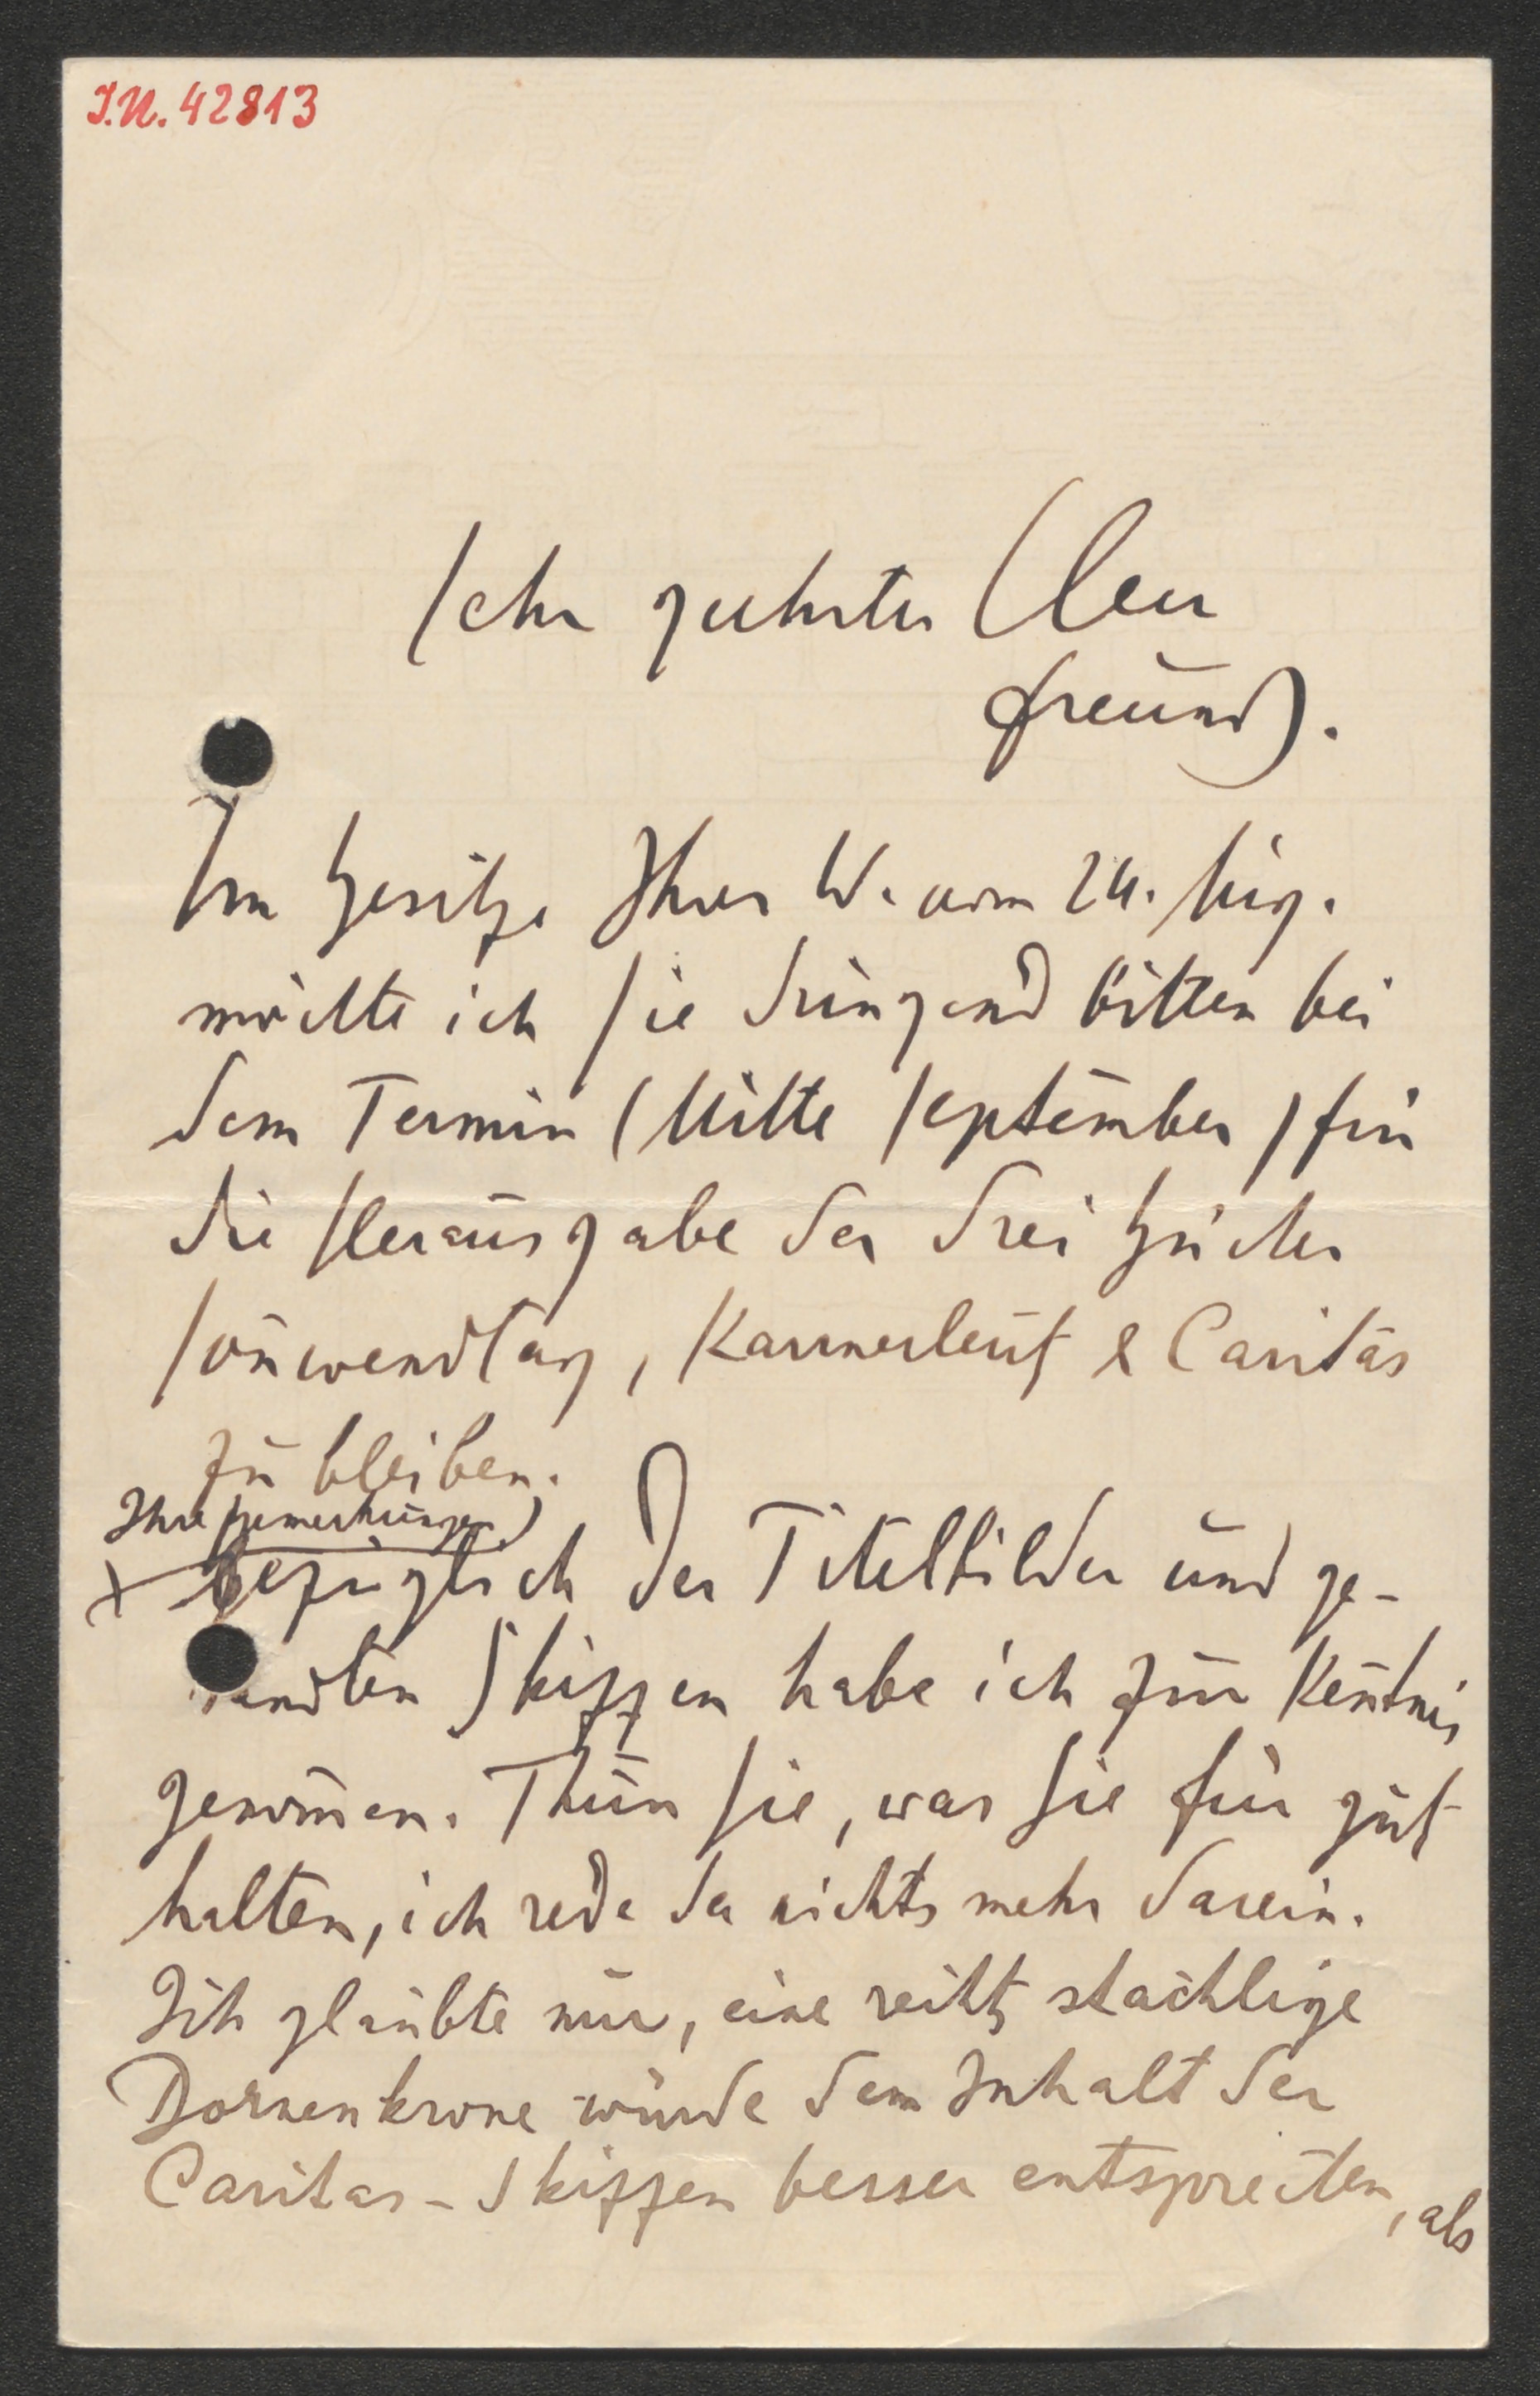 I.N. 42813
Sehr geehrter Herr
Freund.
Im Besitze Ihres W. vom 24. Aug.
möchte ich Sie dringend bitten bei
dem Termin (Mitte September) für
die Herausgabe der drei Bücher
Son̄wendtag, Karrnerleut & Caritas
zu bleiben.
Ihre Bemerkungen
x bezüglich der Titelbilder und ge-
sandten Skizzen habe ich zur Ken̄tnis
genom̄en. Thun Sie, was Sie für gut
halten, ich rede da nichts mehr darein.
Ich glaubte nur, eine recht stachlige
Dornenkrone würde dem Inhalt der
Caritas-Skizzen besser entsprechen, als